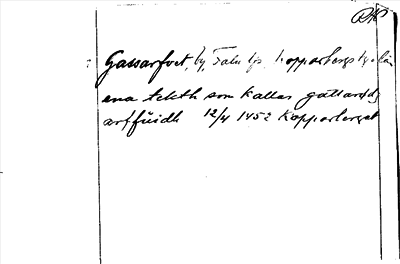 Gassarfvet, by, Falu tjs. Kopparbergs
ena tekth som kallas gattars
arffuidh 12/4 1452 Kopparberget